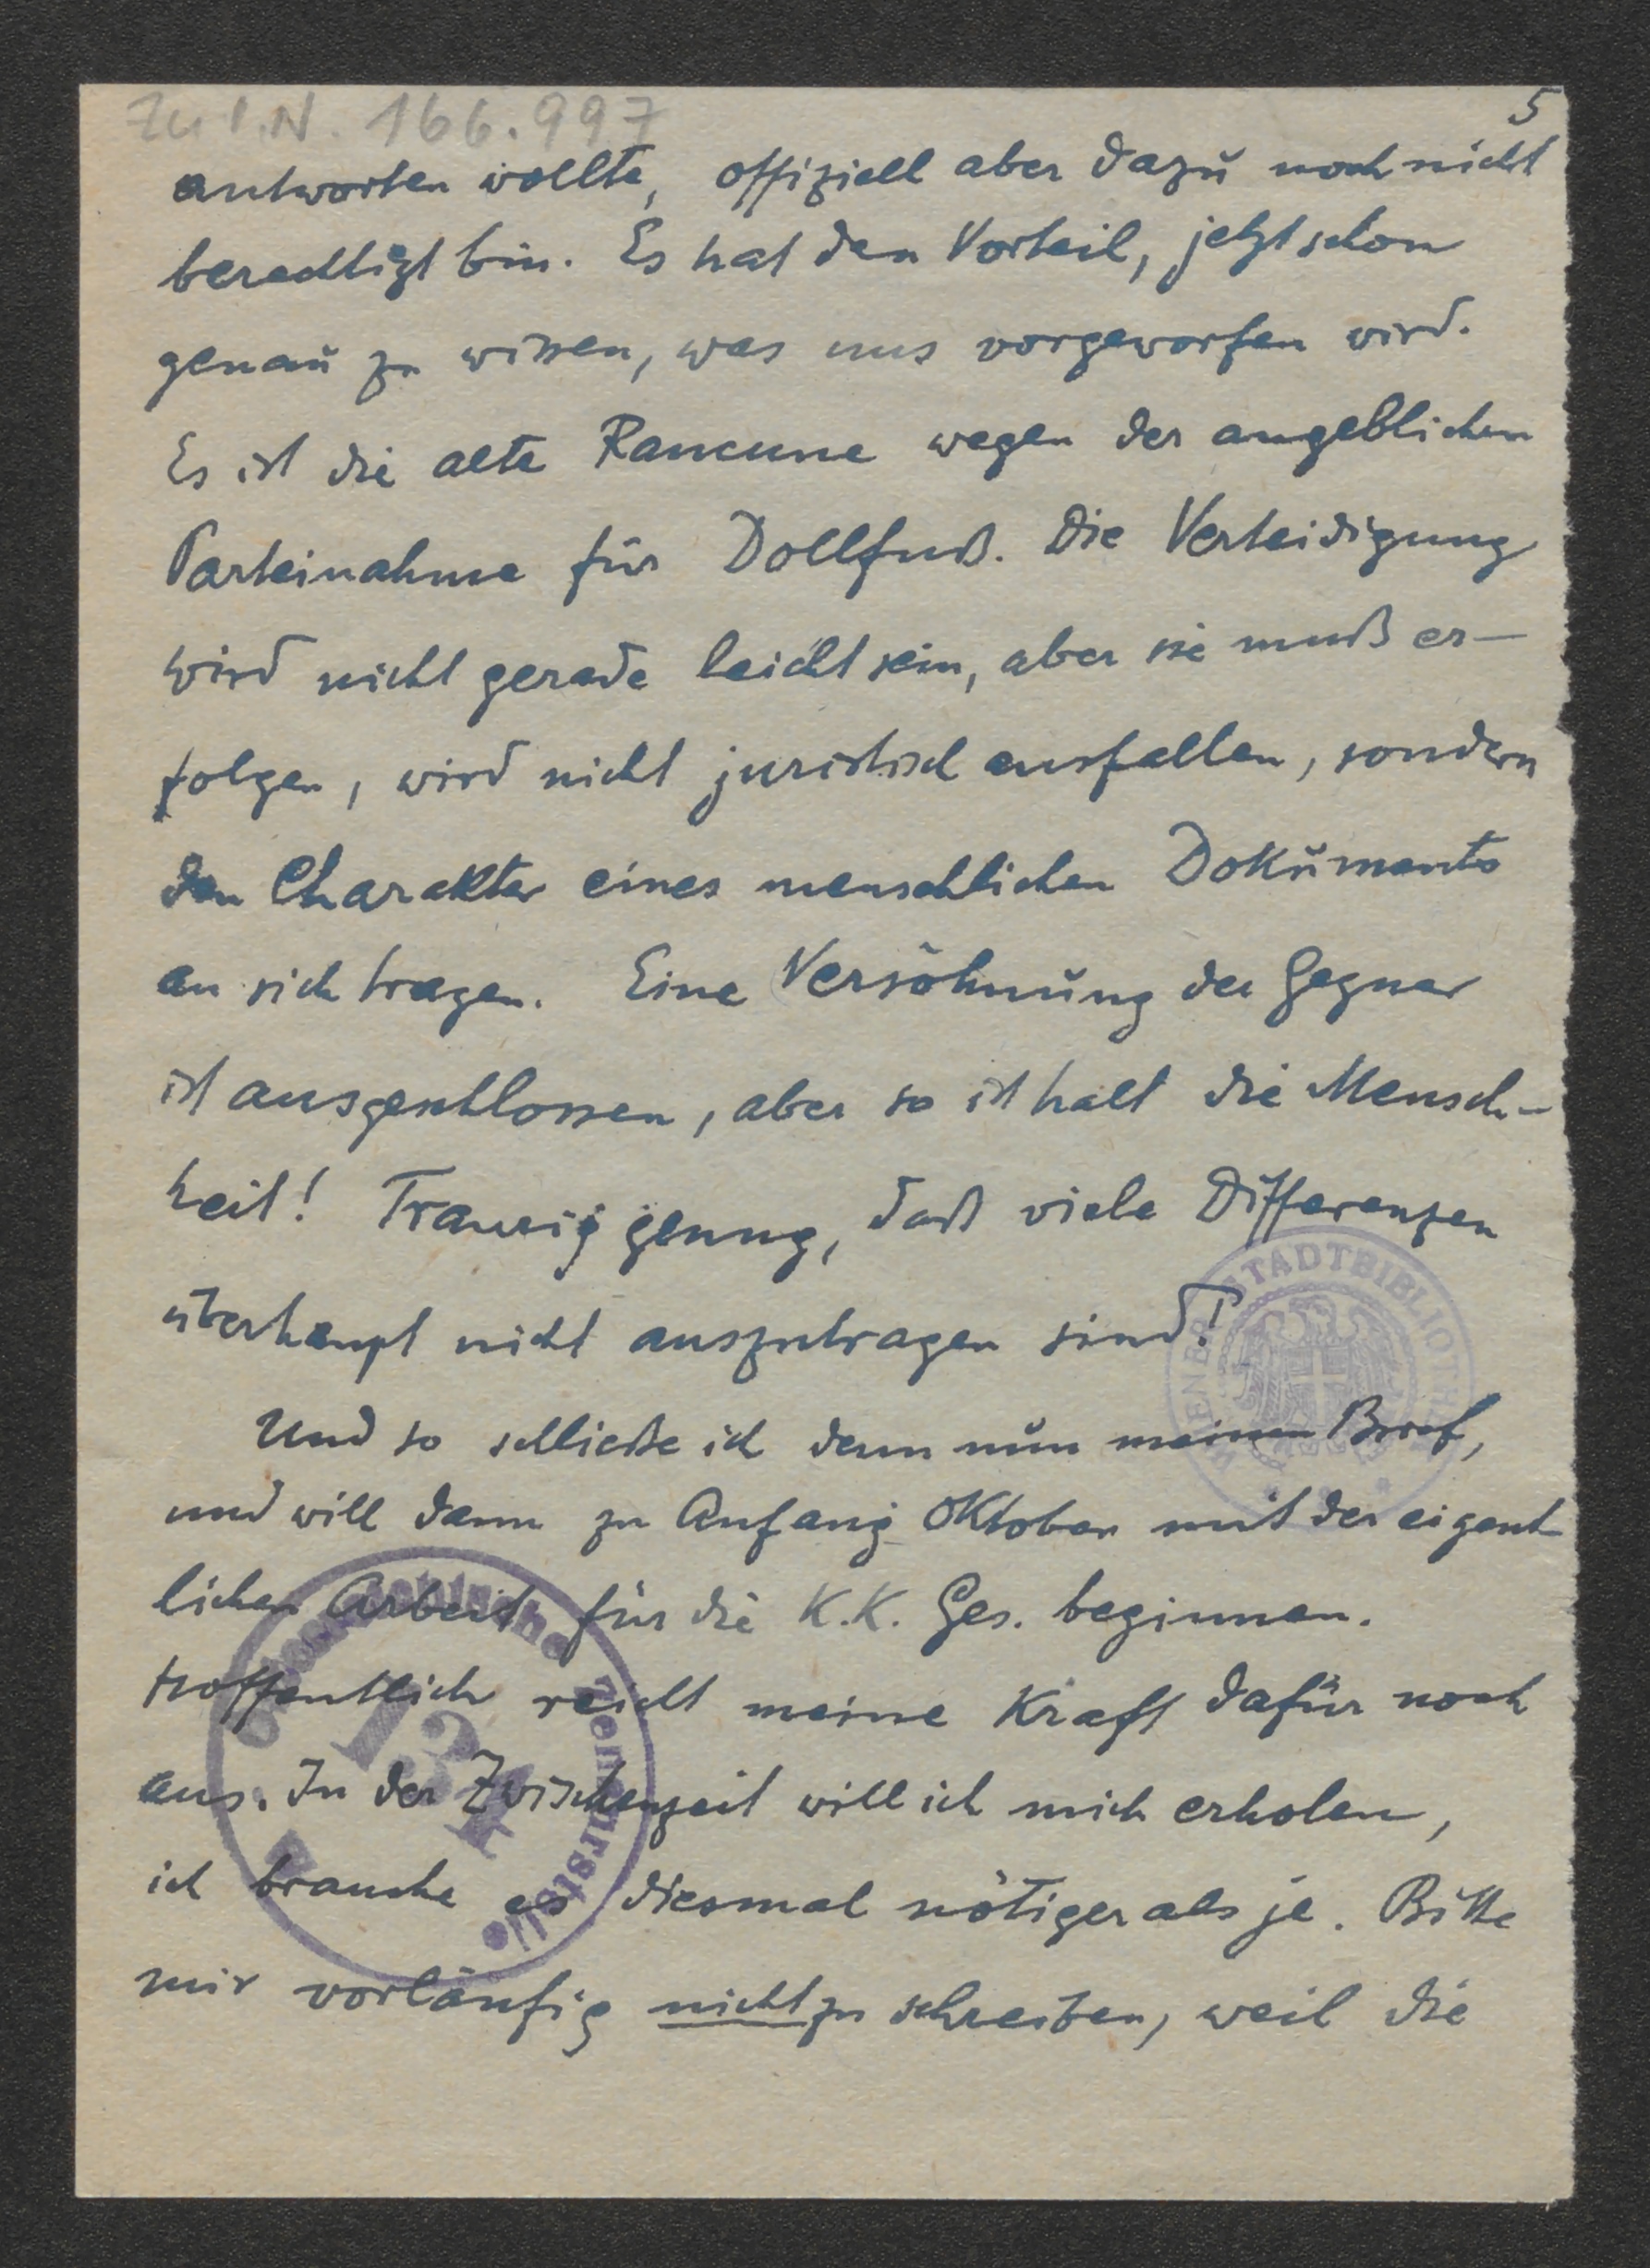 Zu I.N. 166.997
5
antworten wollte, offiziell aber dazu noch nicht
berechtigt bin. Es hat den Vorteil, jetzt schon
genau zu wissen, was uns vorgeworfen wird.
Es ist die alte Rancune wegen der angeblichen
Parteinahme für Dollfuß. Die Verteidigung
wird nicht gerade leicht sein, aber sie muß er-
folgen, wird nicht juristisch ausfallen, sondern
den Charakter eines menschlichen Dokuments
an sich tragen. Eine Versöhnung der Gegner
ist ausgeschlossen, aber so ist halt die Mensch-
heit! Traurig genug, daß viele Differenzen
überhaupt nicht auszutragen sind!
WIENER STADTBIBLIOTHEK
Und so schließe ich denn nun meinen Brief,
und will dann zu Anfang Oktober mit der eigent
lichen Arbeit für die K.K. Ges. beginnen.
Hoffentlich reicht meine Kraft dafür noch
aus. In der Zwischenzeit will ich mich erholen,
ich brauche es diesmal nötiger als je. Bitte
mir vorläufig nicht zu schreiben, weil die
Österreichische Zensurstelle